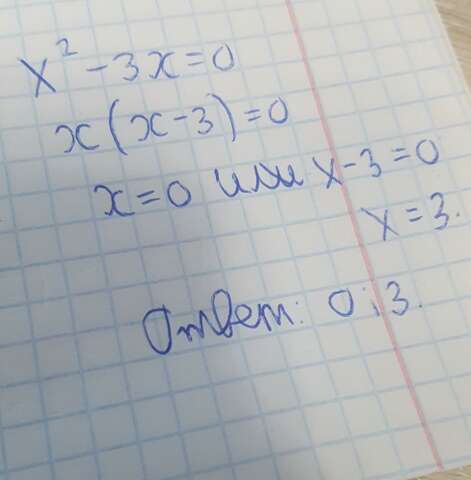 x² - 3x = 0
x(x-3) = 0
x = 0 или x-3 = 0
x = 3.
Ответ: 0; 3.